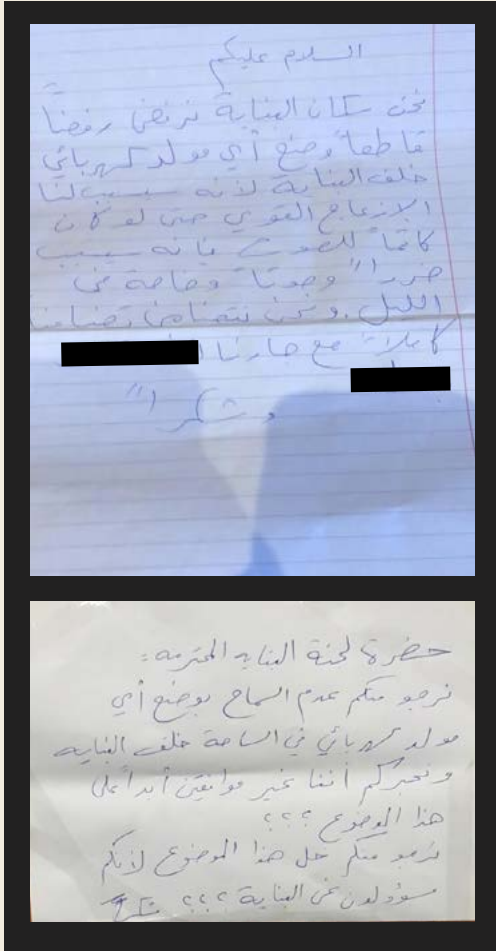 السلام عليكم
نحن سكان البناية نرفض رفضاً
قاطعاً وضع أي مولد كهربائي
خلف البناية لأنه سيسبب لنا
الازعاج القوي حتى لو كان
كاتماً للصوت فإنه يسبب
ضرراً وصوتاً وخاصة في
الليل. ونحن نتضامن تضامناً
كاملاً مع جارنا
وشكراً
حضرة لجنة البنايه المحترمه:
نرجو منكم عدم السماح بوضع أي
مولد كهربائي في الساحة خلف البنايه
ونخبركم أننا غير موافقين أبداً على
هذا الموضوع ؟؟؟
نرجو منكم حل هذا الموضوع لأنكم
مسؤولون عن البناية ؟؟؟ شكراً